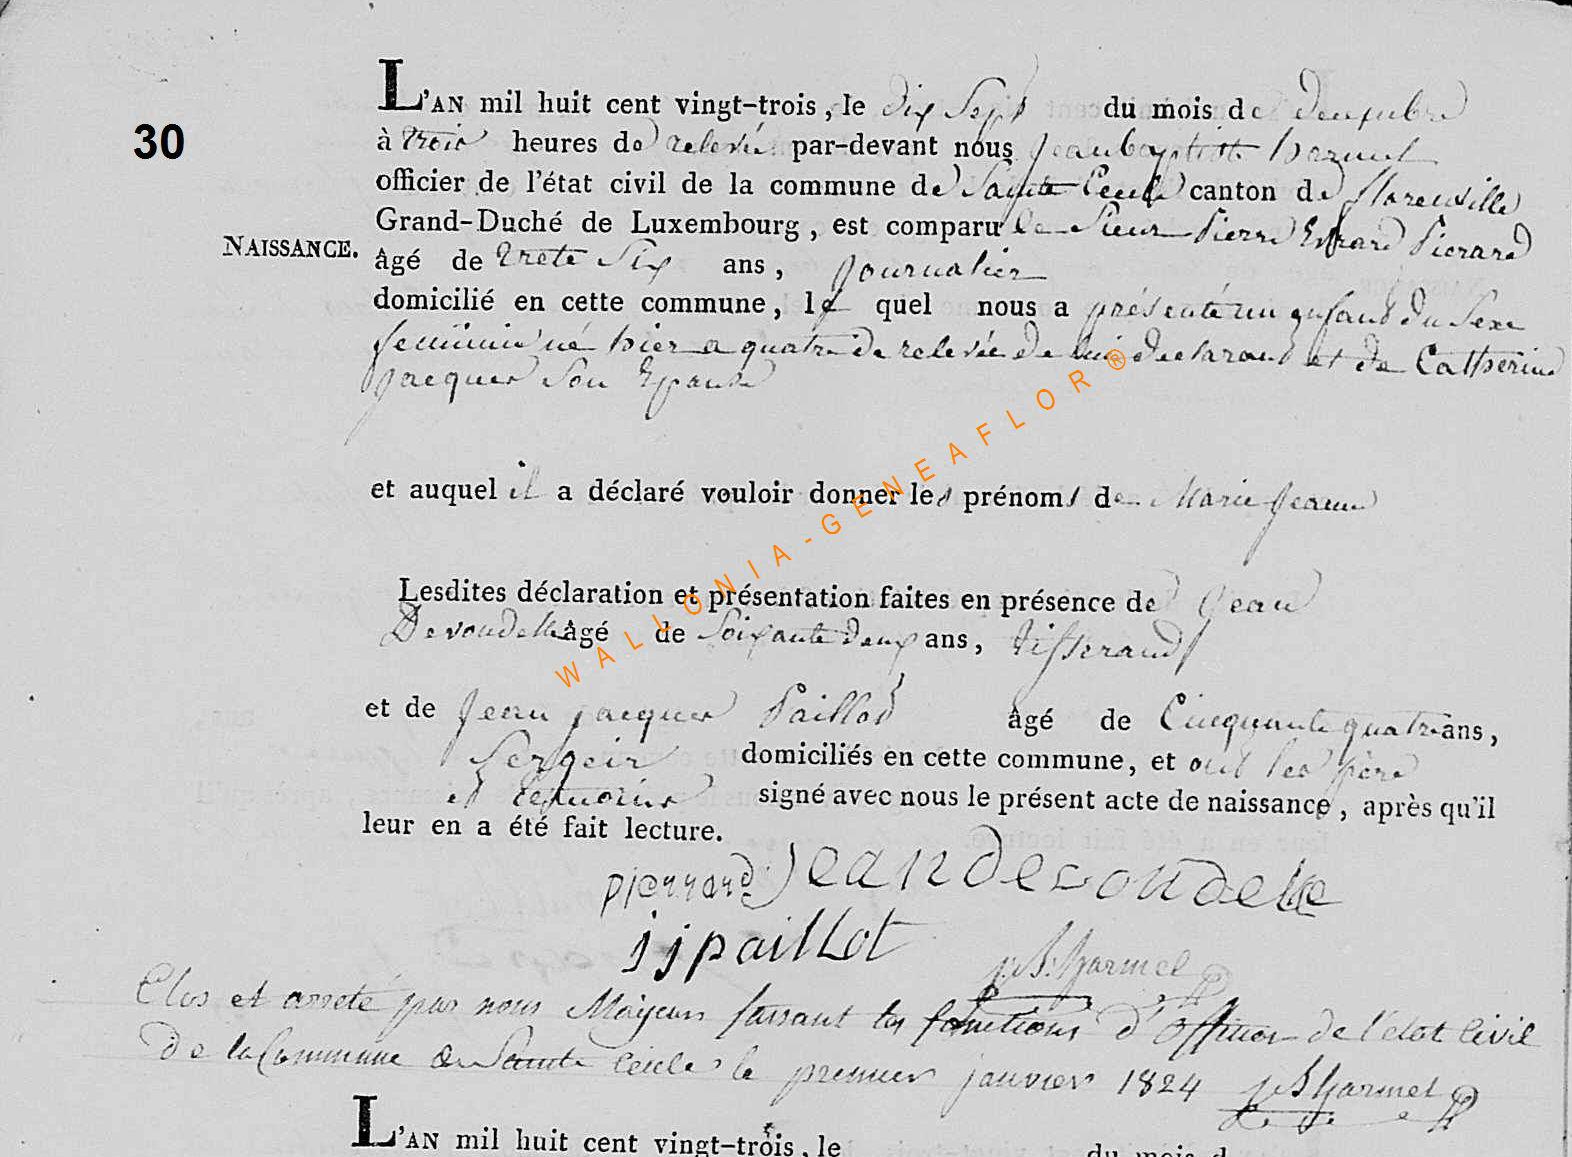 L'AN mil huit cent vingt-trois, le dix Sept du mois de decembre
30
à trois heures de relevée par-devant nous jean baptiste harmel
officier de l'état civil de la commune de Sainte Cecile canton de florenville
Grand-Duché de Luxembourg, est comparu le Sieur Pierre Evrard Pierard
NAISSANCE.
âgé de trete Six ans, journalier
domicilié en cette commune, le quel nous a présenté un enfant du Sexe
feminin né hier a quatre de relevée de lui declarant et de Catherine
jacques Son Epouse
et auquel il a déclaré vouloir donner les prénoms de Marie jeanne
Lesdites déclaration et présentation faites en présence de jean
Devondelle âgé de Soixante deux ans, tisserand
et de jean jacques Paillot âgé de Cinquante quatre ans,
Sergeir domiciliés en cette commune, et ont les père
et temoins signé avec nous le présent acte de naissance, après qu'il
leur en a été fait lecture.
pierrard jean devondelle
jjpaillot
j.B.harmel
Clos et arreté par nous Mayeur faisant les fonctions d'officier de l'état Civil
de la Commune de Sainte Cecile le premier janvier 1824 jB harmel
L'AN mil huit cent vingt-trois, le du mois d
WALLONIA-GENEAFLOR®